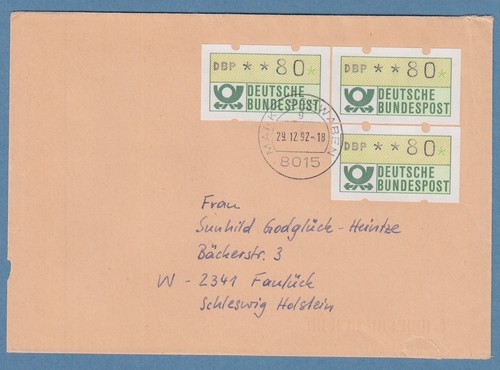 DBP **80*
DEUTSCHE
BUNDESPOST
DBP **80*
DEUTSCHE
BUNDESPOST
DBP **80*
DEUTSCHE
BUNDESPOST
MARKT SCHWABEN
g
29.12.92-18
8015
Frau
Sunhild Godglück-Heintze
Bäckerstr. 3
W - 2341 Faulück
Schleswig Holstein